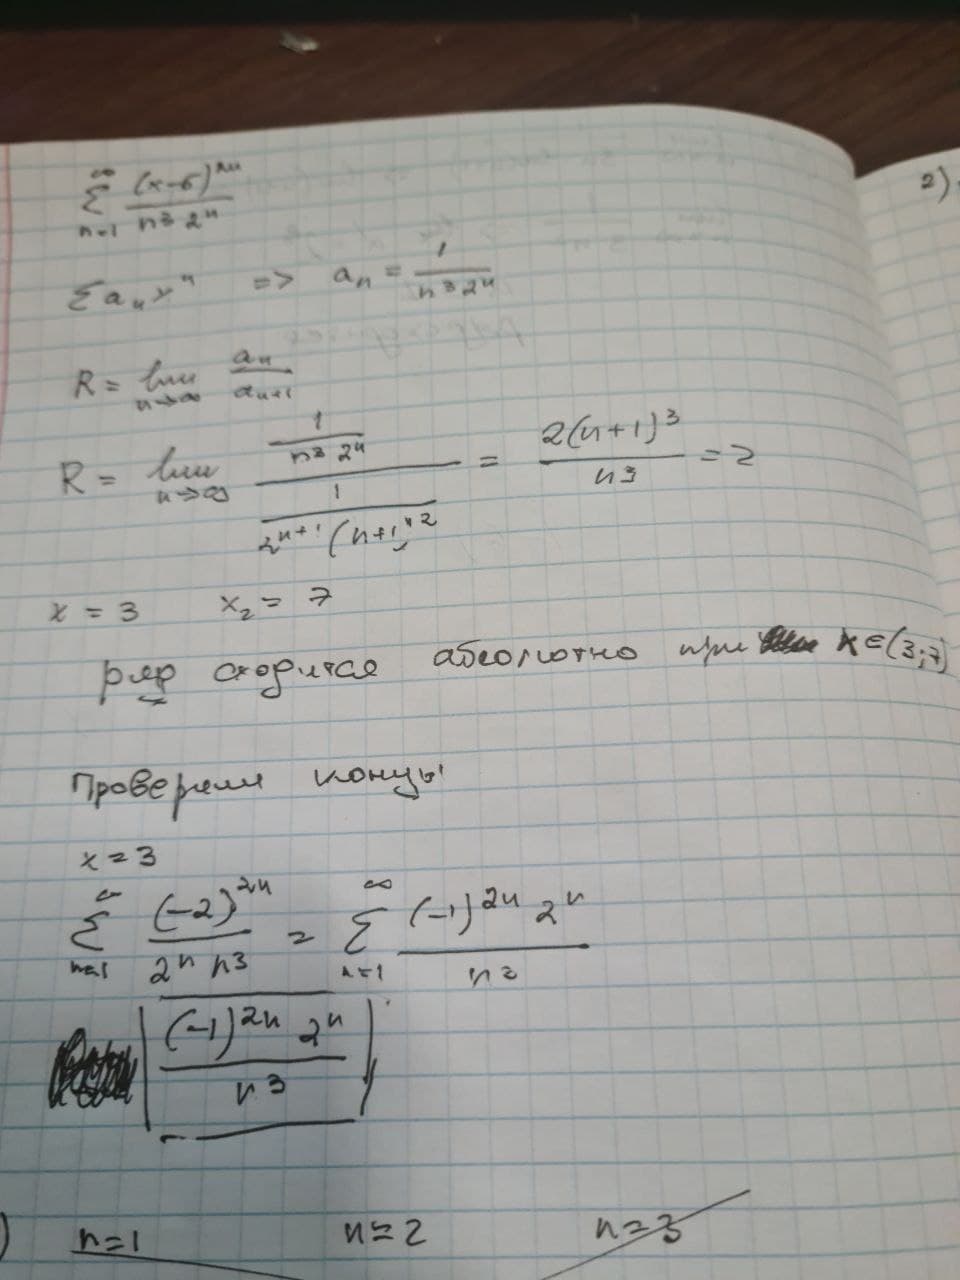 ∞
Σ (x-5)^{2n} / n^3 2^n
n=1
2)
Σ a_n x^n => a_n = 1 / n^3 2^n
R = lim_{n→∞} a_n / a_{n+1}
R = lim_{n→∞} (1 / n^3 2^n) / (1 / 2^{n+1} (n+1)^3) = 2(n+1)^3 / n^3 = 2
x = 3 x_2 = 7
ряд сходится абсолютно при x ∈ (3;7)
Проверяем концы
x = 3
∞ ∞
Σ (-2)^{2n} / 2^n n^3 = Σ (-1)^{2n} 2^n / n^3
n=1 n=1
| (-1)^{2n} 2^n / n^3 |
) n=1 n=2 n=3